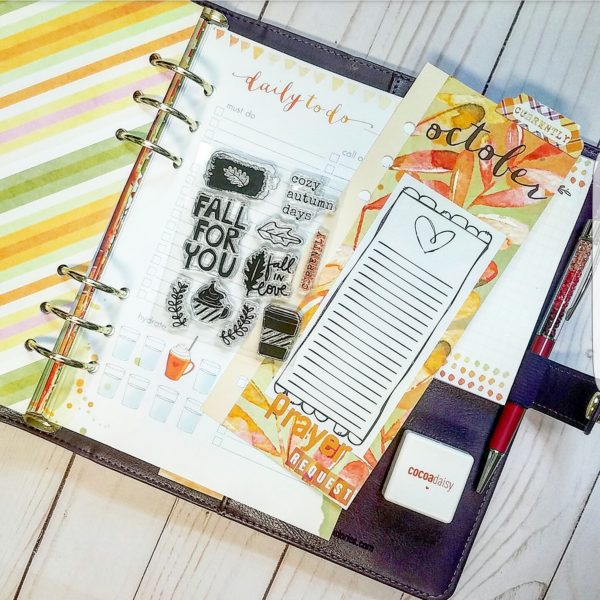 daily to do
must do
call o
hydrate
cozy
autumn
days
FALL
FOR
YOU
fall
in
love
CURRENTLY
CURRENTLY
october
prayer
REQUEST
cocoadaisy